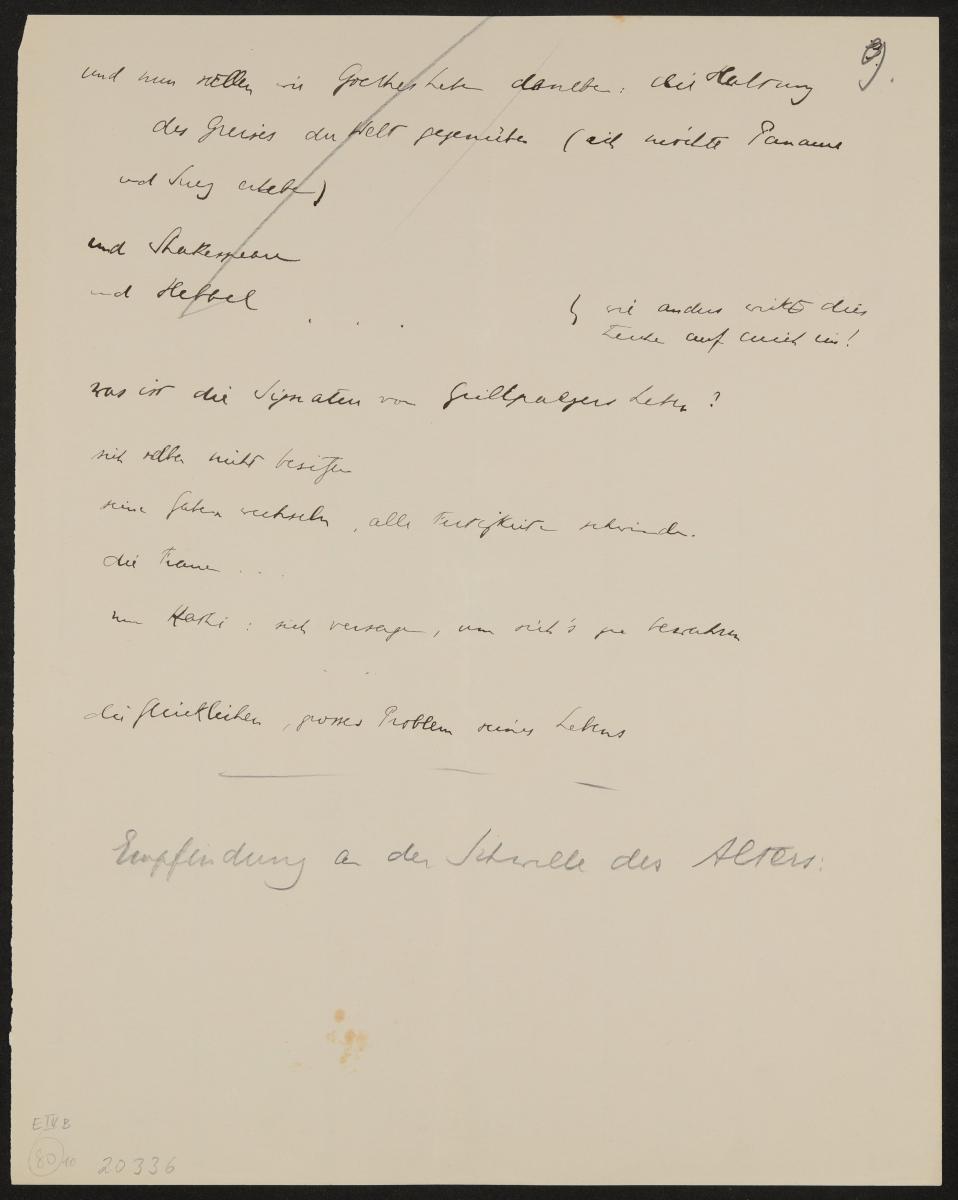 3).
und nun stellen wir Goethes Leben daneben: die Haltung
des Greises der Welt gegenüber (ich möchte Panama
und Suez erleben)
und Shakespeare
und Hebbel . . .
wie anders wirkt dies
Zeichen auf mich ein!
was ist die Signatur von Grillparzers Leben?
sich selber nicht besitzen
seine Gaben wechseln, alle Fertigkeiten schwinden.
die Frauen . . .
nun Kathi: sich versagen, um sich's zu bewahren
die Glücklichen, grosses Problem seines Lebens
Empfindung an der Schwelle des Alters:
E IV B
80 10 20336